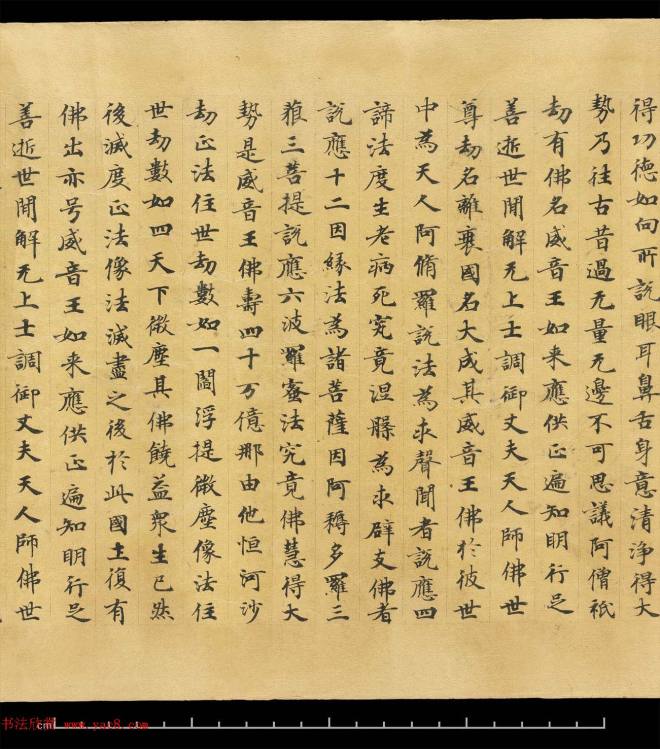 得功德如向所說眼耳鼻舌身意清淨得大
勢乃往古昔過无量无邊不可思議阿僧祇
劫有佛名威音王如来應供正遍知明行足
善逝世間解无上士調御丈夫天人師佛世
尊劫名離衰國名大成其威音王佛於彼世
中為天人阿脩羅說法為求聲聞者說應四
諦法度生老病死究竟涅槃為求辟支佛者
說應十二因緣法為諸菩薩因阿耨多羅三
藐三菩提說應六波羅蜜法究竟佛慧得大
勢是威音王佛壽四十万億那由他恒河沙
劫正法住世劫數如一閻浮提微塵像法住
世劫數如四天下微塵其佛饒益衆生已然
後滅度正法像法滅盡之後於此國土復有
佛出亦号威音王如来應供正遍知明行足
善逝世間解无上士調御丈夫天人師佛世
cm
书法欣赏 www.yac8.com